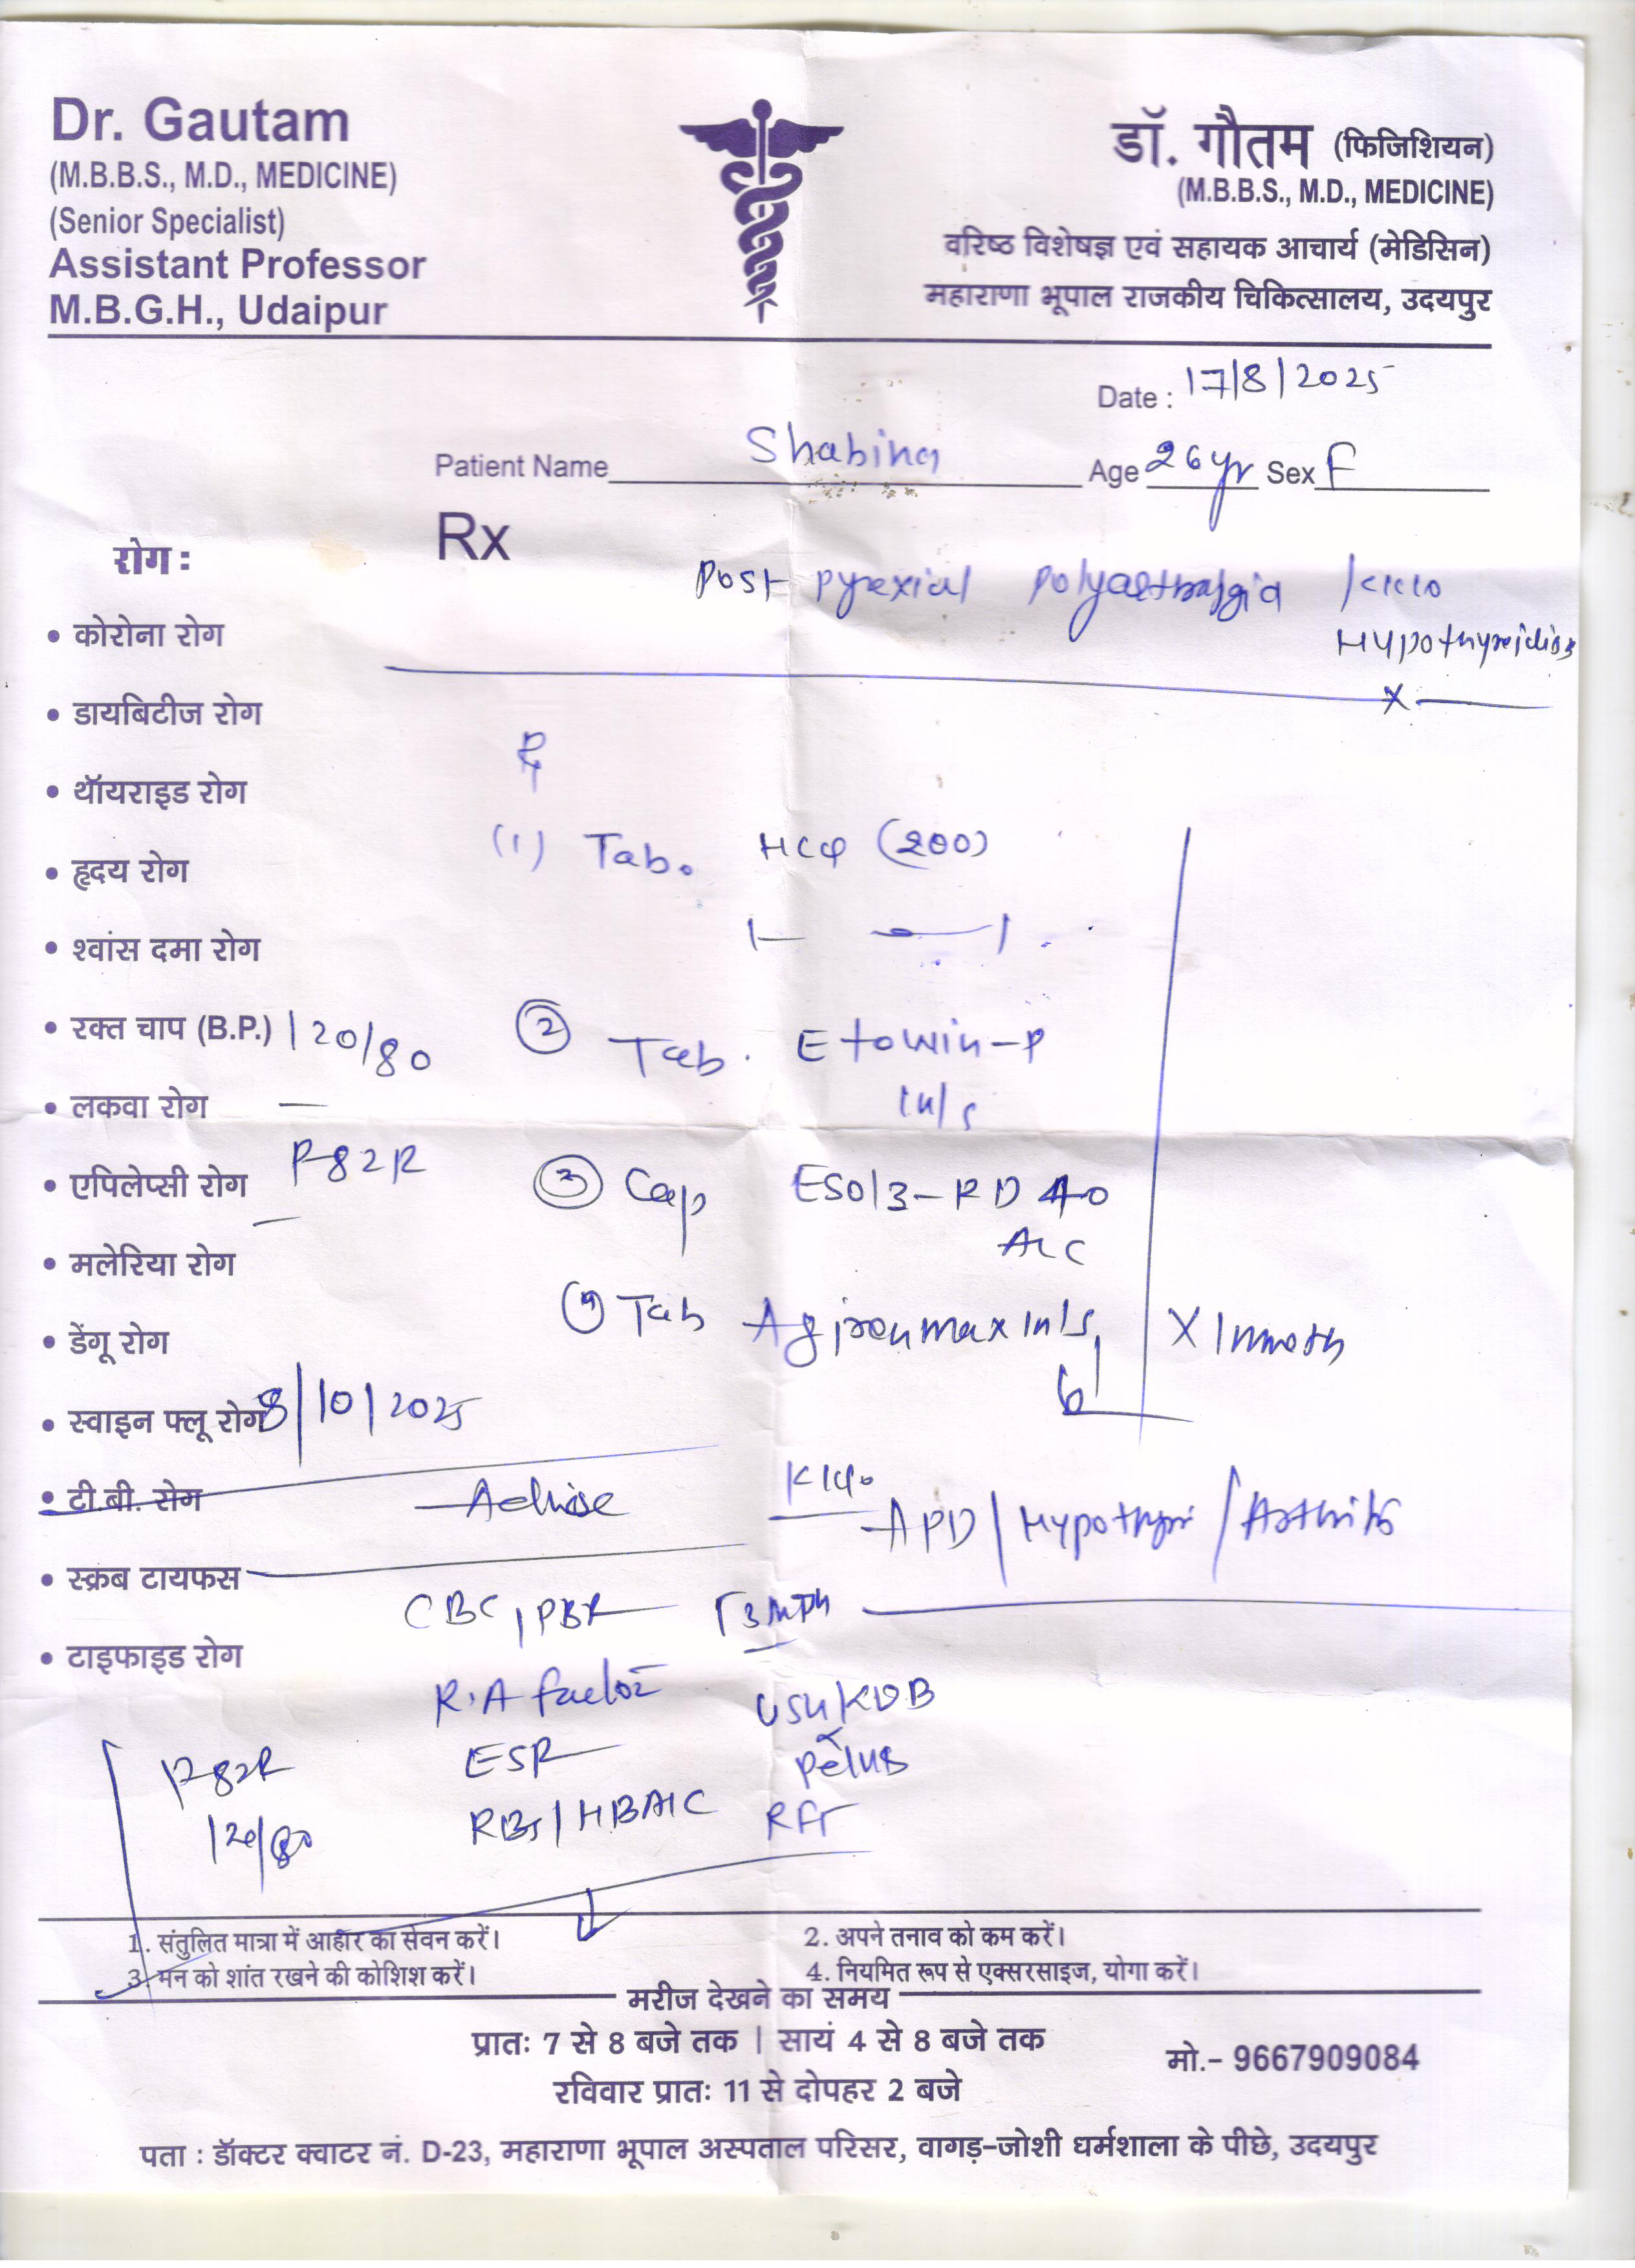 Dr. Gautam
(M.B.B.S., M.D., MEDICINE)
(Senior Specialist)
Assistant Professor
M.B.G.H., Udaipur
डॉ. गौतम (फिजिशियन)
(M.B.B.S., M.D., MEDICINE)
वरिष्ठ विशेषज्ञ एवं सहायक आचार्य (मेडिसिन)
महाराणा भूपाल राजकीय चिकित्सालय, उदयपुर
Date : 17/8/2025
Patient Name Shabina Age 26yr Sex F
Rx
Post pyrexial polyarthralgia / K/C/O
Hypothyroidism
रोग :
• कोरोना रोग
• डायबिटीज रोग
• थॉयराइड रोग
• हृदय रोग
• श्वांस दमा रोग
• रक्त चाप (B.P.) 120/80
• लकवा रोग
• एपिलेप्सी रोग P-82R
• मलेरिया रोग
• डेंगू रोग
• स्वाइन फ्लू रोग 8/10/2025
• टी.बी. रोग
• स्क्रब टायफस
• टाइफाइड रोग
(1) Tab. HCQ (200)
(2) Tab. Etowin-P
1n/s
(3) Cap ESOlZ-RD 40
(4) Tab 1n/s
X 1 month
Advise
K/C/o
APD / Hypothy / Arthritis
CBC, PBF
R.A factor
ESR
RBS / HBA1C
USG/KUB
Pelvis
RFT
P 82R
120/80
1. संतुलित मात्रा में आहार का सेवन करें।
2. अपने तनाव को कम करें।
3. मन को शांत रखने की कोशिश करें।
4. नियमित रूप से एक्सरसाइज, योगा करें।
मरीज देखने का समय
प्रातः 7 से 8 बजे तक | सायं 4 से 8 बजे तक
रविवार प्रातः 11 से दोपहर 2 बजे
मो.- 9667909084
पता : डॉक्टर क्वाटर नं. D-23, महाराणा भूपाल अस्पताल परिसर, वागड़-जोशी धर्मशाला के पीछे, उदयपुर